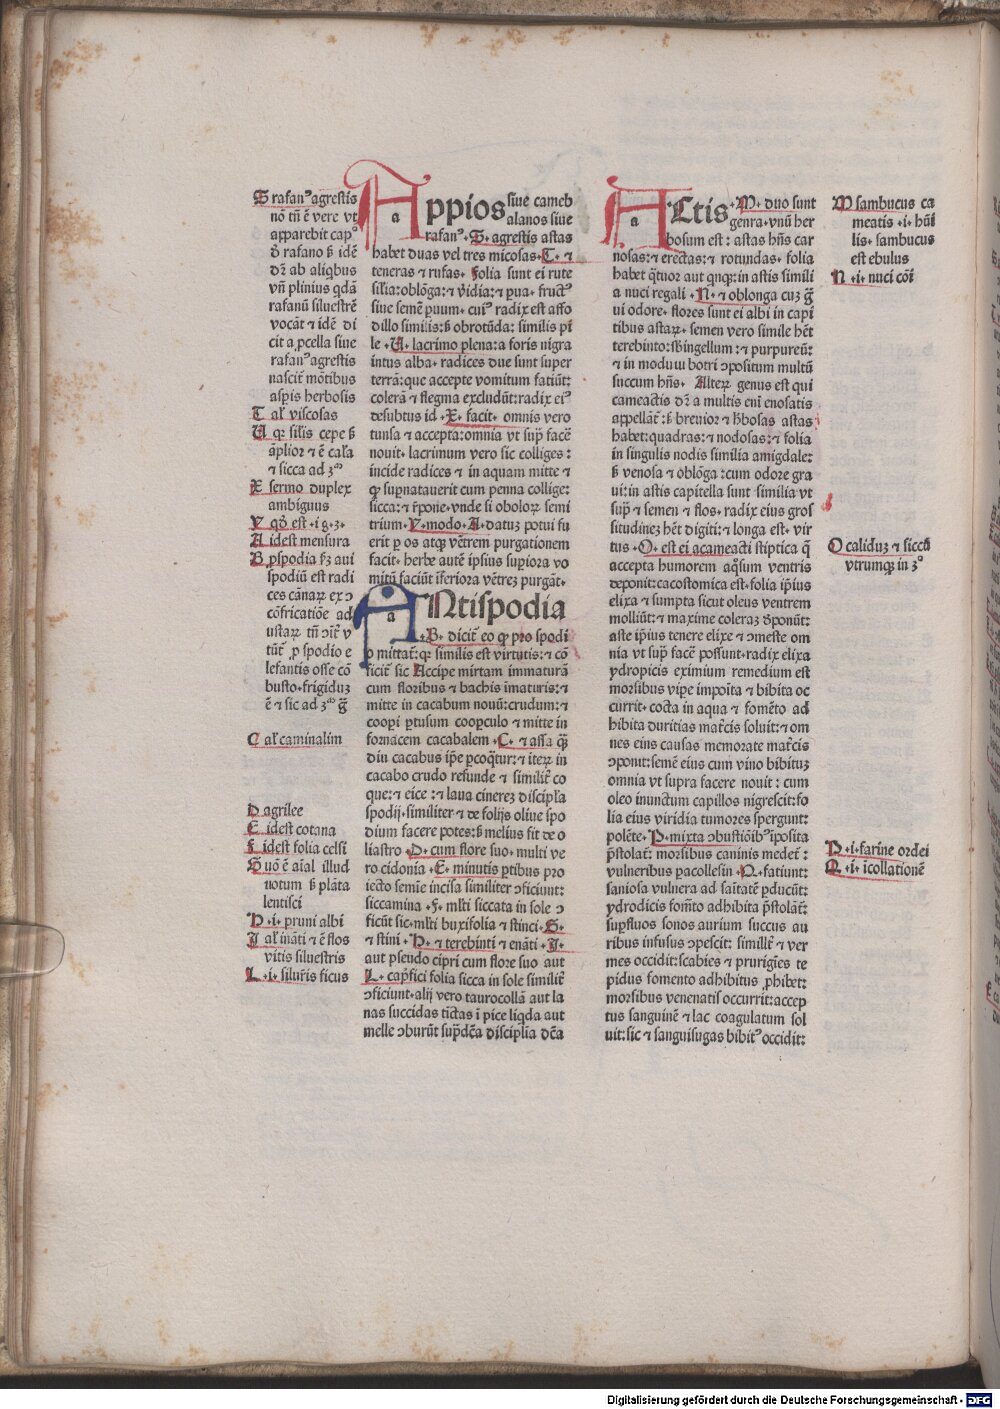 S rafanꝰ agrestis
nō tñ ē vere vt
apparebit capꝰ
ď rafano ß idē
dr̄ ab aliqbus
vñ plinius qdā
rafanū siluestrē
vocāt ⁊ idē di
cit a ꝓcella siue
rafanꝰ agrestis
nascit̄ mōtibus
aspis herbosis
T al viscosas
V qꝛ silis cepe ß
āplior ⁊ ē cala
⁊ sicca ad 3ᵐ
X sermo duplex
ambiguus
Y qď est ·i g·3·
A idest mensura
B pspodia fꝫ aui
spodiū est radi
ces cānaꝝ ex ↄ
cōfricatiōe ad
ustaꝝ tñ ↄit̄ v
tūt̄ ꝓ spodio e
lefantis osse cō
busto·frigiduꝫ
ē ⁊ sic ad 3ᵐ g̃
C al caminalim
D agrilee
E idest cotana
F idest folia celsi
G uo ē aial illud
notum ß plāta
lentisci
H ·i· pruni albi
I al ināti ⁊ ē flos
vitis siluestris
L ·i· silur̄is ficus
Appios siue cameb
alanos siue
rafanꝰ·S· agrestis astas
habet duas vel tres micosas·T· ⁊
teneras ⁊ rufas· folia sunt ei rute
silia: oblōga: ⁊ v̄idia: ⁊ pua· fructꝰ
siue semē puum· cuiꝰ radix est affo
dillo similis: ß obrotūda: similis pi
le ·V· lacrimo plena: a foris nigra
intus alba· radices due sunt super
terrā: que accepte vomitum fatiūt:
colerā ⁊ flegma excludūt: radix eiꝰ
desubtus id ·X· facit· omnis vero
tunsa ⁊ accepta: omnia vt sup̄ facē
nouit· lacrimum vero sic colliges:
incide radices ⁊ in aquam mitte ⁊
qď supnatauerit cum penna collige:
sicca: ⁊ r̄pone· vnde si oboloꝝ semi
trium·Y·modo·A·datuꝫ potui fu
erit p os atqꝫ vētrem purgationem
facit· herbe autē ipsius supiora vo
mitū faciūt if̄eriora vētreꝫ purgāt·
ANtispodia
·B· dicit̄ eo qď pro spodi
o mittat̄: qꝛ similis est virtutis: ⁊ cō
ficit̄ sic Accipe mirtam immaturā
cum floribus ⁊ bachis īmaturis: ⁊
mitte in cacabum nouū: crudum: ⁊
coopi ptusum coopculo ⁊ mitte in
fornacem cacabalem ·C· ⁊ assa qꝫ
diu cacabus ip̄e pcoq̄tur: ⁊ iteꝝ in
cacabo crudo refunde ⁊ similit̄ co
que: ⁊ eice: ⁊ laua cinereꝫ discipl̄a
spodij· similiter ⁊ de folijs oliue spo
dium facere potes: ß melius fit de o
liastro ·D· cum flore suo· multi ve
ro cidonia ·E· minutis ptibus pro
iecto semīe incisa similiter ↄficiunt:
siccamina ·F· ml̄ti siccata in sole ↄ
ficūt sic· ml̄ti buxifolia ⁊ stinci·G·
⁊ stini ·H· ⁊ terebinti ⁊ enāti ·I·
aut pseudo cipri cum flore suo aut
L· cap̄fici folia sicca in sole similit̄
ↄficiunt· alij vero taurocollā aut la
nas succidas tictas ī pice liqda aut
melle ↄburūt sup̄dc̄a disciplīa dc̄a
ACtis ·M· duo sunt
genra· vnū her
bosum est: astas hñs car
nosas: ⁊ erectas: ⁊ rotundas· folia
habet q̄tuor aut qnqꝫ: in astis simili
a nuci regali ·N· ⁊ oblonga cuꝫ g̃
ui odore· flores sunt ei albi in capi
tibus astaꝝ· semen vero simile hēt
terebinto: sꝫ singellum: ⁊ purpureū:
⁊ in modum botri ↄpositum multū
succum hñs· Alteꝝ genus est qui
cameactis dr̄ a multis eni enosatis
appellāt̄: ß breuior ⁊ h̄bosas astas
habet: quadras: ⁊ nodosas: ⁊ folia
in singulis nodis similia amigdale:
ß venosa ⁊ oblōga: cum odore gra
ui: in astis capitella sunt similia vt
sup̄ ⁊ semen ⁊ flos· radix eius gros
situdineꝫ hēt digiti: ⁊ longa est· vir
tus ·O· est ei acameacti stiptica q̄
accepta humorem aqsum ventris
deponit: cacostomica est· folia ip̄ius
elixa ⁊ sumpta sicut oleus ventrem
molliūt: ⁊ maxime coleraꝫ deponūt:
aste ip̄ius tenere elixe ⁊ ↄmeste om
nia vt sup̄ facē possunt· radix elixa
ydropicis eximium remedium est
morsibus vipe impoīta ⁊ bibita oc
currit· cocta in aqua ⁊ fomēto ad
hibita duritias matr̄cis soluit: ⁊ om
nes eius causas memorate matr̄cis
ↄponit: semē eius cum vino bibituꝫ
omnia vt supra facere nouit: cum
oleo inunctum capillos nigrescit: fo
lia eius viridia tumores spergunt:
polēte ·P· mixta ↄbustiōibꝰ īposita
p̄stolat̄: morsibus caninis medet̄:
vulneribus pacollesin ·Q· fatiunt:
saniosa vulnera ad saītatē pducūt:
ydrodicis fom̄to adhibita p̄stolāt̄:
supfluos sonos aurium succus au
ribus infusus ↄpescit: simil̄it̄ ⁊ ver
mes occidit: scabies ⁊ prurigīes te
pidus fomento adhibitus ꝓhibet:
morsibus venenatis occurrit: accep
tus sanguinē ⁊ lac coagulatum sol
uit: sic ⁊ sanguisugas bibitꝰ occidit:
M sambucus ca
meatis ·i· hūi
lis· sambucus
est ebulus
N ·i· nuci cōi
O caliduꝫ ⁊ siccū
vtrumqꝫ in 3ᵒ
P ·i· farine ordei
Q ·i· icollationē
Digitalisierung gefördert durch die Deutsche Forschungsgemeinschaft - DFG